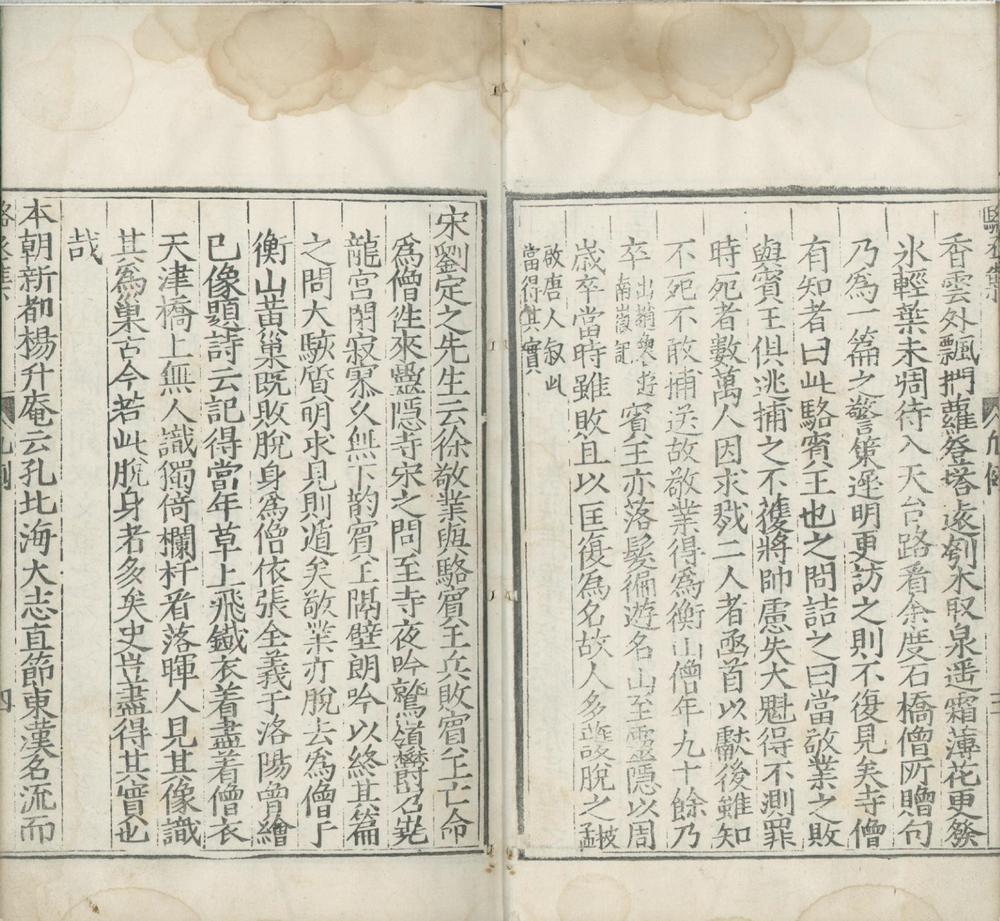 香雲外飄捫蘿登塔遠刳木取泉遥霜薄花更發
氷輕葉未凋待入天台路看余度石橋僧所贈句
乃爲一篇之警策遲明更訪之則不復見矣寺僧
有知者曰此駱賔王也之問詰之曰當敬業之敗
與賔王俱逃捕之不獲將帥慮失大魁得不測罪
時死者數萬人因求戮二人者函首以獻後雖知
不死不敢捕送故敬業得爲衡山僧年九十餘乃
卒
出趙魯遊
南嶽記
賔王亦落髮徧遊名山至靈隱以周
歳卒當時雖敗且以匡復爲名故人多護脫之
按
孟
啟唐人叙此
當得其實
宋劉定之先生云徐敬業與駱賔王兵敗賔王亡命
爲僧徃來靈隱寺宋之問至寺夜吟鷲嶺欝岧嶤
龍宮閉寂寥久無下韵賔王隔壁朗吟以終其篇
之問大駭質明求見則遁矣敬業亦脫去爲僧于
衡山黃巢既敗脫身爲僧依張全義于洛陽曾繪
巳像題詩云記得當年草上飛鐵衣着盡着僧衣
天津橋上無人識獨倚欄杆看落暉人見其像識
其爲巢古今若此脫身者多矣史豈盡得其實也
哉
本朝新都楊升庵云孔北海大志直節東漢名流而
四